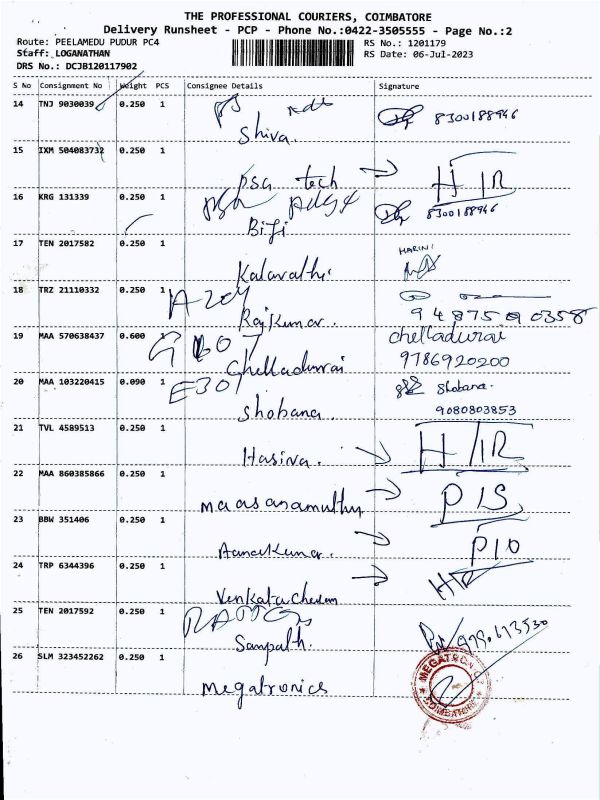 THE PROFESSIONAL COURIERS, COIMBATORE
Delivery Runsheet - PCP - Phone No.:0422-3505555 - Page No.:2
Route: PEELAMEDU PUDUR PC4 RS No.: 1201179
Staff: LOGANATHAN RS Date: 06-Jul-2023
DRS No.: DCJB120117902
S No Consignment No Weight PCS Consignee Details Signature
14 TNJ 9030039 0.250 1
Shiva. 8300188946
15 IXM 504083732 0.250 1
psg tech H/R
16 KRG 131339 0.250 1
Biji 8300188946
17 TEN 2017582 0.250 1 HARINI
Kalavathi.
18 TRZ 21110332 0.250 1 A204
Rajkumar.
19 MAA 570638437 0.600 1 G B07 chelladurai
Chelladurai 9786920200
20 MAA 103220415 0.090 1 E301 Shobana.
Shobana. 9080803853
21 TVL 4589513 0.250 1
Hasiva. H/R
22 MAA 860385866 0.250 1
maasanamuthu P/S
23 BBW 351406 0.250 1
P/O
24 TRP 6344396 0.250 1
H/R
25 TEN 2017592 0.250 1
Sampath.
26 SLM 323452262 0.250 1
Megatronics
COIMBATORE